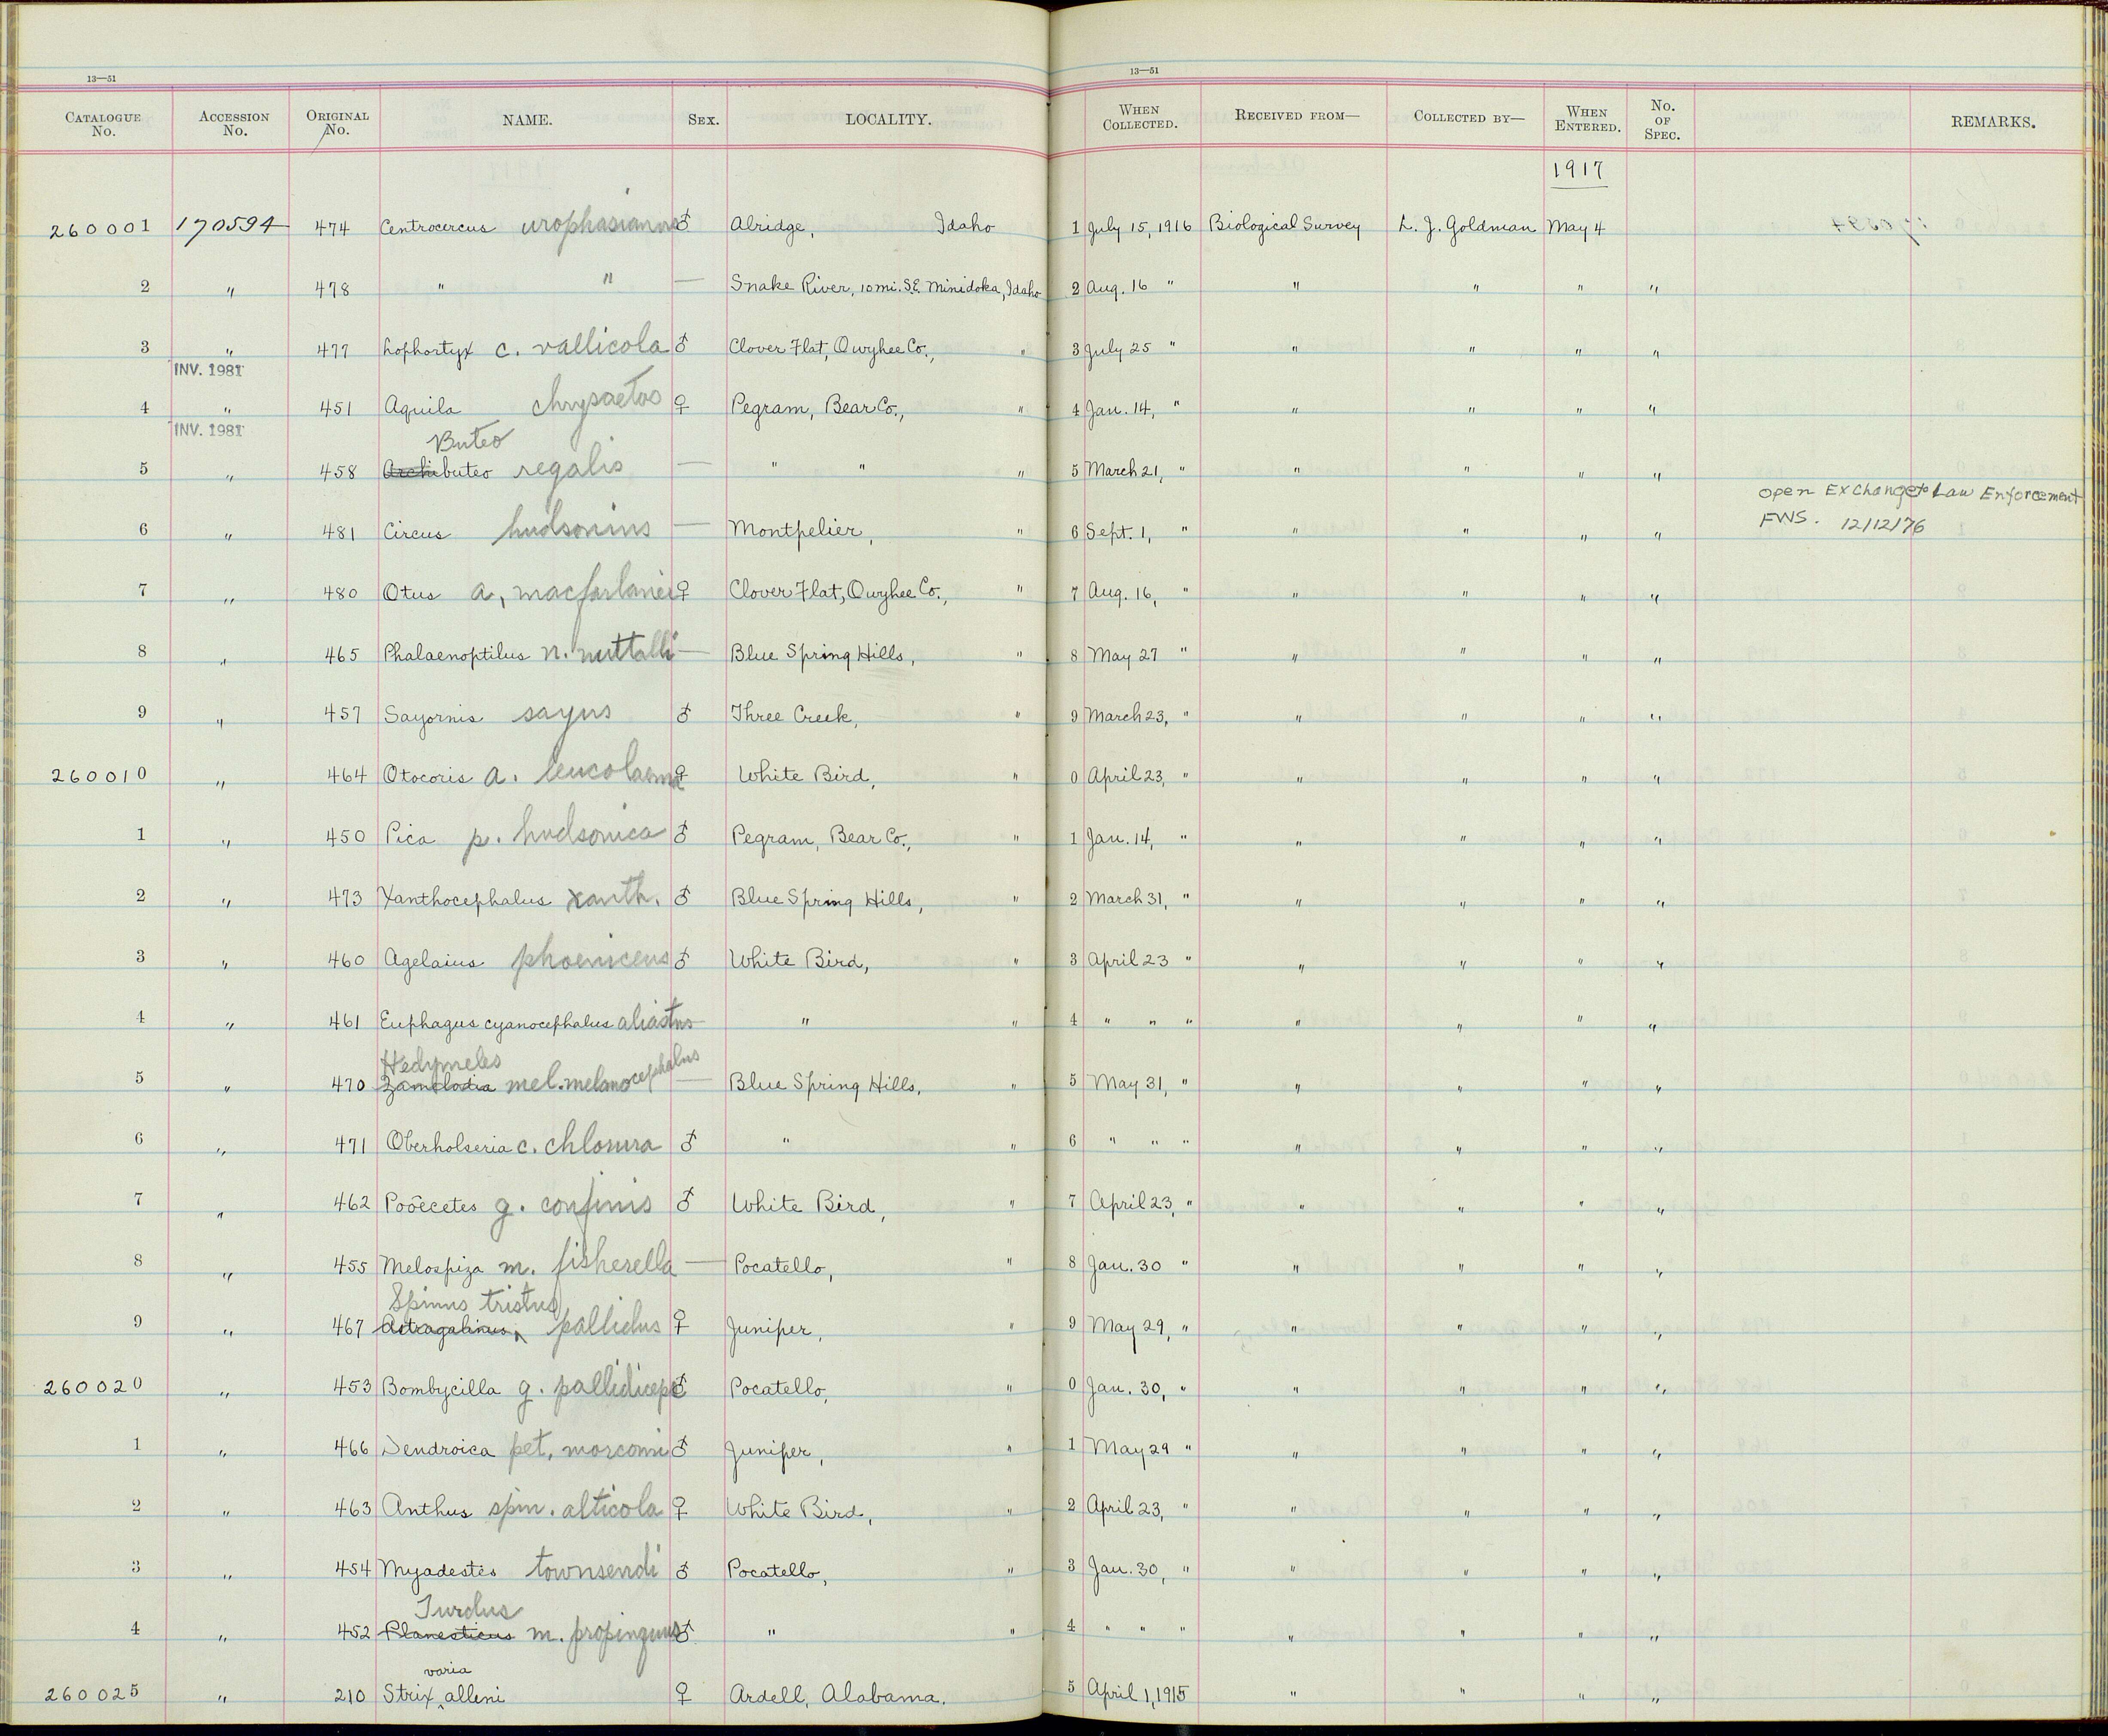 13—51 13—51
CATALOGUE No. ACCESSION No. ORIGINAL No. NAME. SEX. LOCALITY. WHEN COLLECTED. RECEIVED FROM— COLLECTED BY— WHEN ENTERED. No. OF SPEC. REMARKS.
1917
260001 170594 474 Centrocercus urophasianus ♂ Alridge, Idaho 1 July 15, 1916 Biological Survey L. J. Goldman May 4
2 " 478 " " — Snake River, 10 mi. S.E. Minidoka, Idaho 2 Aug. 16 " " " " "
3 " 477 Lophortyx c. vallicola ♂ Clover Flat, Owyhee Co., " 3 July 25 " " " " "
INV. 1981
4 " 451 Aquila chrysaetos ♀ Pegram, Bear Co., " 4 Jan. 14, " " " " "
INV. 1981
Buteo
5 " 458 Archibuteo regalis — " " " 5 March 21, " " " " "
Open Exchange to Law Enforcement
FWS. 12/12/76
6 " 481 Circus hudsonius — Montpelier, " 6 Sept. 1, " " " " "
7 " 480 Otus a, macfarlanei ♀ Clover Flat, Owyhee Co., " 7 Aug. 16, " " " " "
8 " 465 Phalaenoptilus n. nuttalli — Blue Spring Hills, " 8 May 27 " " " " "
9 " 457 Sayornis sayus ♂ Three Creek, " 9 March 23, " " " " "
260010 " 464 Otocoris a. leucolaema ♀ White Bird, " 0 April 23, " " " " "
1 " 450 Pica p. hudsonica ♂ Pegram, Bear Co., " 1 Jan. 14, " " " " "
2 " 473 Xanthocephalus xanth. ♂ Blue Spring Hills, " 2 March 31, " " " " "
3 " 460 Agelaius phoeniceus ♂ White Bird, " 3 April 23 " " " " "
4 " 461 Euphagus cyanocephalus aliastus — " " 4 " " " " " " "
Hedymeles
5 " 470 Zamelodia mel. melanocephalus — Blue Spring Hills, " 5 May 31, " " " " "
6 " 471 Oberholseria c. chlorura ♂ " " 6 " " " " " " "
7 " 462 Poöecetes g. confinis ♂ White Bird, " 7 April 23, " " " " "
8 " 455 Melospiza m. fisherella — Pocatello, " 8 Jan. 30 " " " " "
Spinus tristus
9 " 467 Astragalinus pallidus ♀ Juniper, " 9 May 29, " " " " "
260020 " 453 Bombycilla g. pallidiceps ♂ Pocatello, " 0 Jan. 30, " " " " "
1 " 466 Dendroica pet. morcomi ♂ Juniper, " 1 May 29 " " " " "
2 " 463 Anthus spin. alticola ♀ White Bird, " 2 April 23, " " " " "
3 " 454 Myadestes townsendi ♂ Pocatello, " 3 Jan. 30, " " " " "
Turdus
4 " 452 Planesticus m. propinquus ♂ " " 4 " " " " " " "
varia
260025 " 210 Strix alleni ♀ Ardell, Alabama. 5 April 1, 1915 " " " "